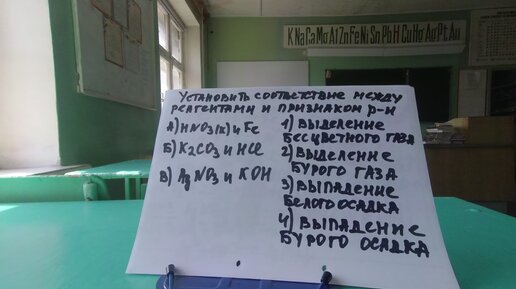 K Na Ca Mg Al Zn Fe Ni Sn Pb H Cu Hg Ag Pt Au
УСТАНОВИТЬ СООТВЕТСТВИЕ МЕЖДУ
РЕАГЕНТАМИ И ПРИЗНАКОМ Р-И
А) HNO3(К) и Fe
Б) K2CO3 и HCl
В) AgNO3 и KOH
1) ВЫДЕЛЕНИЕ
БЕСЦВЕТНОГО ГАЗА
2) ВЫДЕЛЕНИЕ
БУРОГО ГАЗА
3) ВЫПАДЕНИЕ
БЕЛОГО ОСАДКА
4) ВЫПАДЕНИЕ
БУРОГО ОСАДКА